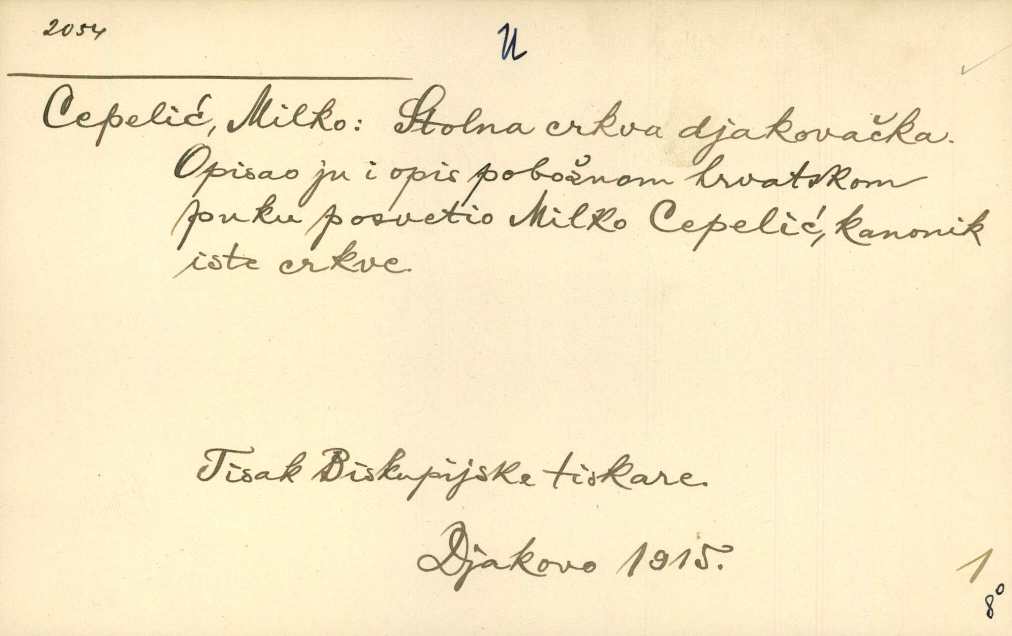 2054
U
Cepelić, Milko: Stolna crkva djakovačka.
Opisao ju i opis pobožnom hrvatskom
puku posvetio Milko Cepelić, kanonik
iste crkve.
Tisak Biskupijske tiskare.
Djakovo 1915.
1
8⁰